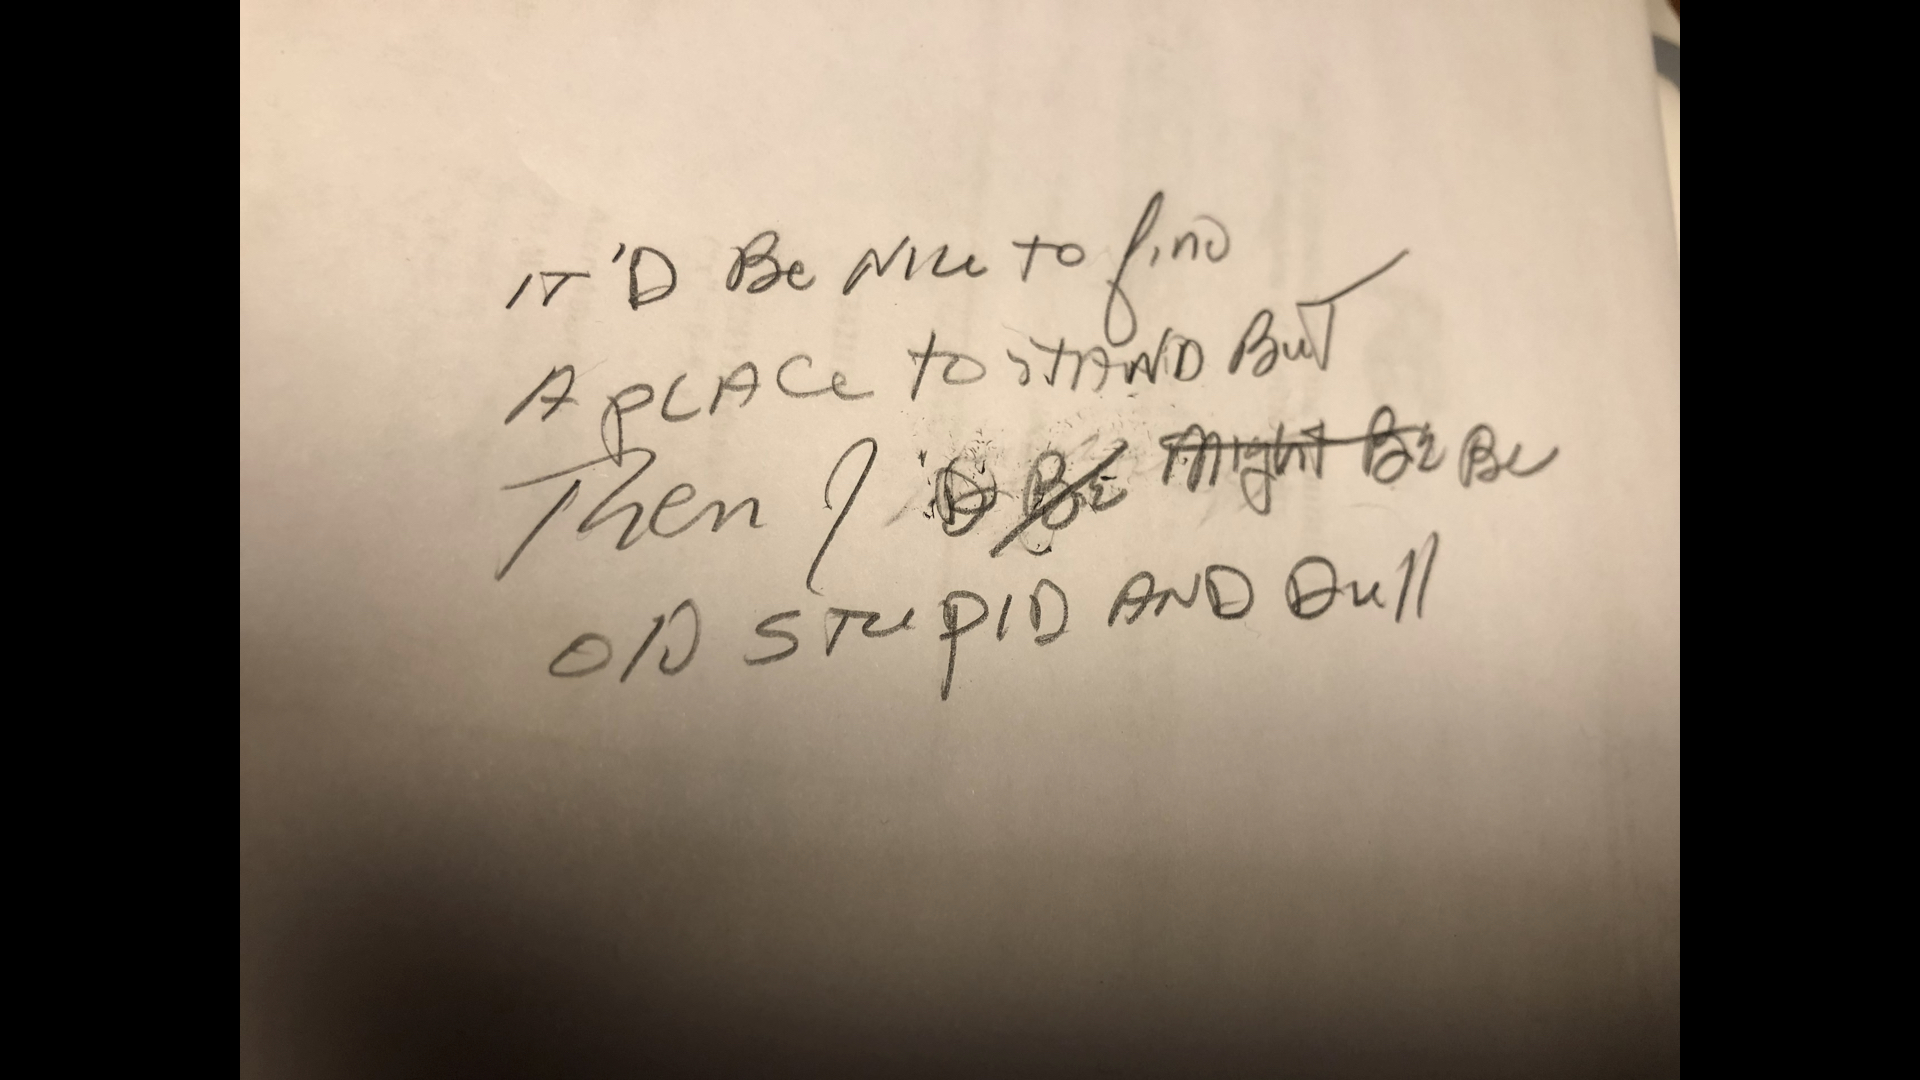 IT'D Be Nice to find
A pLACe to STAND BuT
Then I 'D Be Might Be Be
OlD STupID AND Dull